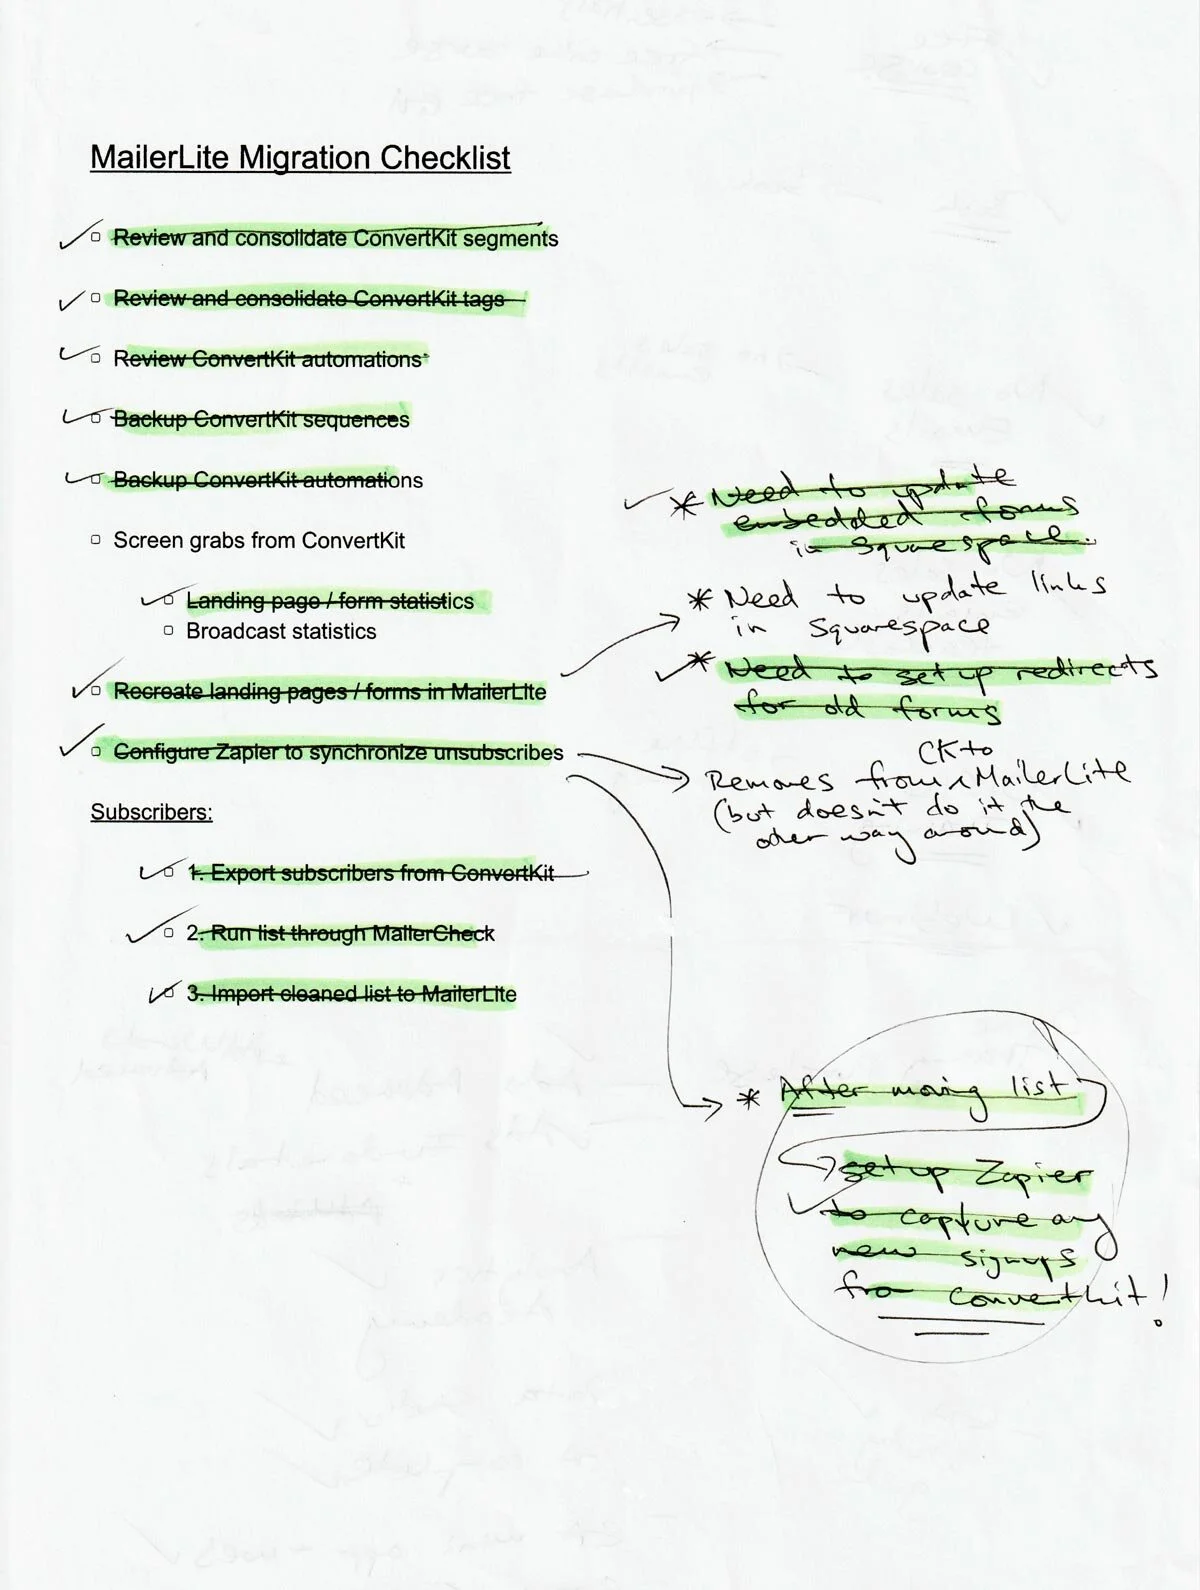 MailerLite Migration Checklist
Review and consolidate ConvertKit segments
Review and consolidate ConvertKit tags
Review ConvertKit automations*
Backup ConvertKit sequences
Backup ConvertKit automations
Screen grabs from ConvertKit
Landing page / form statistics
Broadcast statistics
Recreate landing pages / forms in MailerLite
Configure Zapier to synchronize unsubscribes
Subscribers:
1. Export subscribers from ConvertKit
2. Run list through MailerCheck
3. Import cleaned list to MailerLite
* Need to update
embedded forms
in Squarespace.
* Need to update links
in Squarespace
* Need to set up redirects
for old forms
CK to
Removes from MailerLite
(but doesn't do it the
other way around)
* After moving list
set up Zapier
to capture any
new signups
from ConvertKit!